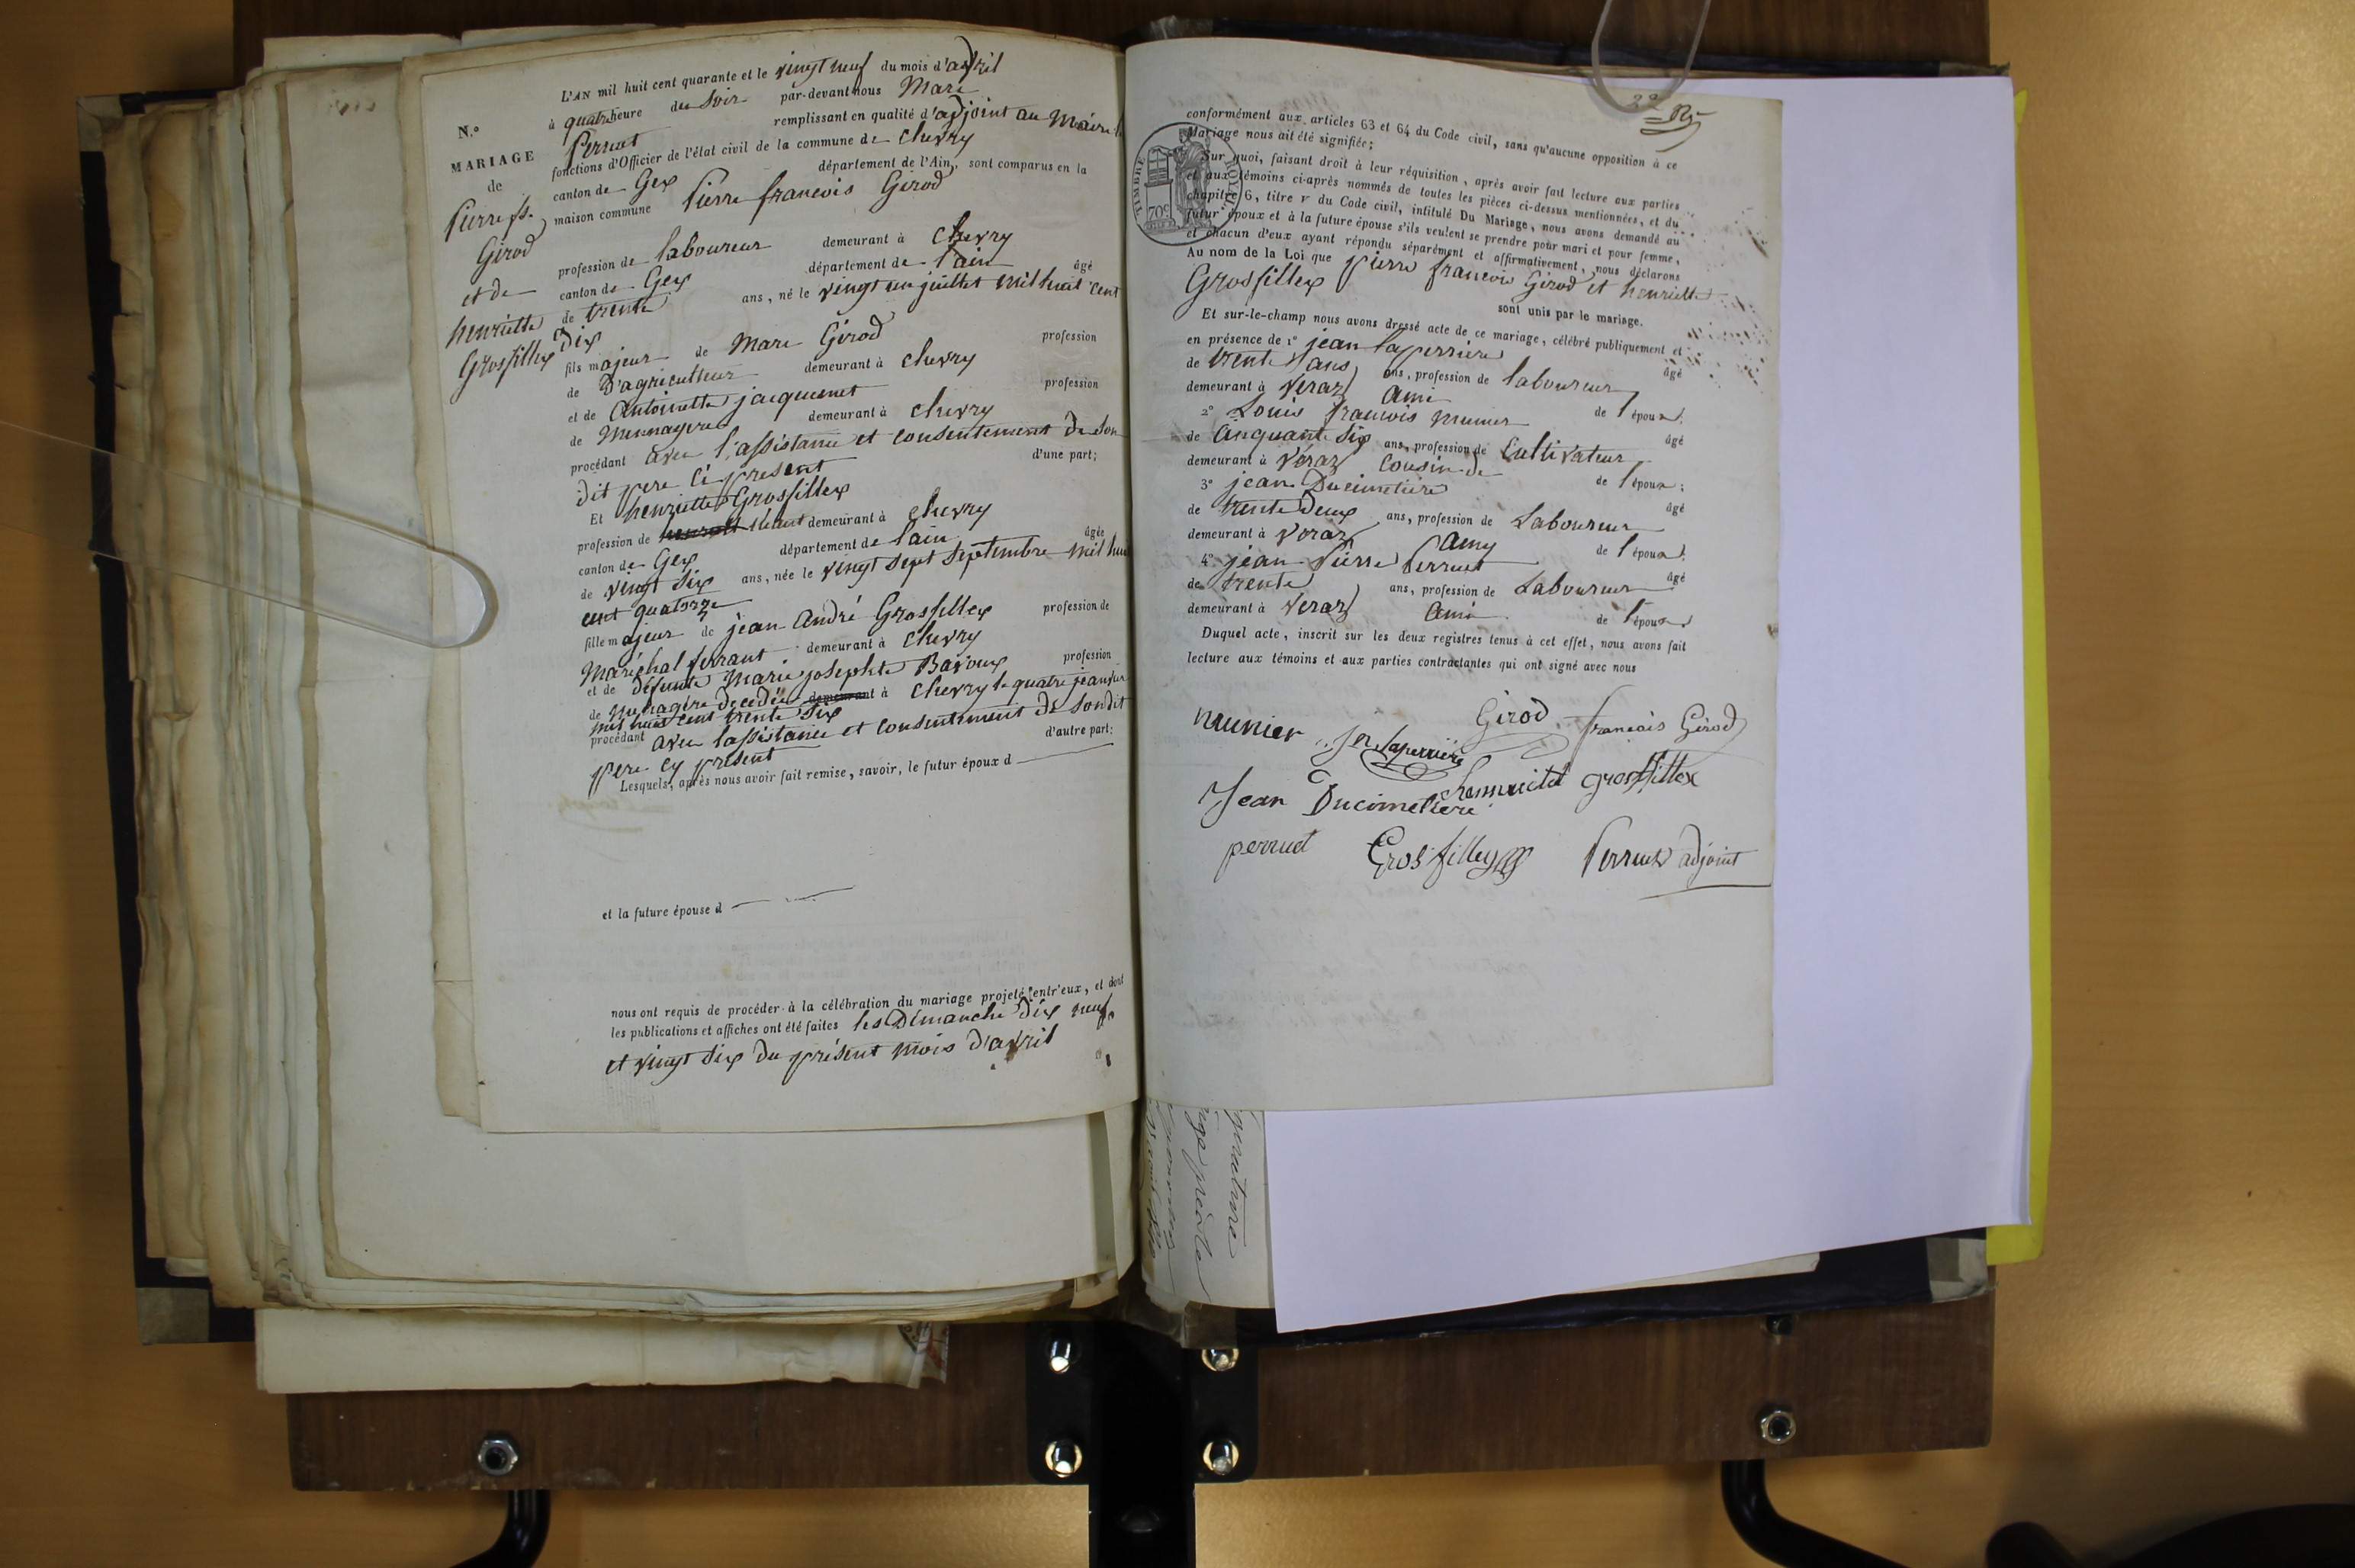 L'AN mil huit cent quarante et le vingt neuf du mois d'avril
à quatre heure du Soir par-devant nous Marc
Perruet remplissant en qualité d'adjoint au Maire
fonctions d'Officier de l'état civil de la commune de chevry
canton de Gex département de l'Ain, sont comparus en la
maison commune Pierre francois Girod
N.°
MARIAGE
de
Pierre fs.
Girod
et de
henriette
Grosfillex
profession de laboureur demeurant à chevry
canton de Gex département de l'ain âgé
de trente ans, né le vingt un juillet mil huit cent
dix
fils majeur de Marc Girod profession
de D'agriculteur demeurant à chevry
et de Antoinette jacquemet profession
de Mennagere demeurant à chevry
procédant avec l'assistance et consentement de son
dit pere ci present d'une part;
Et henriette Grosfillex
profession de demeurant à chevry
canton de Gex département de l'ain âgée
de vingt six ans, née le vingt sept septembre mil huit
cent quatorze
fille majeur de jean André Grosfillex profession de
Maréchal ferrant demeurant à chevry
et de défunte Marie josephte Bavoux profession
de Menagère decedée demeurant à chevry le quatre janvier
mil huit cent trente six
procédant avec l'assistance et consentement de sondit
pere cy present d'autre part;
Lesquels, après nous avoir fait remise, savoir, le futur époux d
et la future épouse d
nous ont requis de procéder à la célébration du mariage projeté entr'eux, et dont
les publications et affiches ont été faites les Dimanche dix neuf
et vingt six du présent mois d'avril
conformément aux articles 63 et 64 du Code civil, sans qu'aucune opposition à ce
Mariage nous ait été signifiée;
Sur quoi, faisant droit à leur réquisition, après avoir fait lecture aux parties
et aux témoins ci-après nommés de toutes les pièces ci-dessus mentionnées, et du
chapitre 6, titre v du Code civil, intitulé Du Mariage, nous avons demandé au
futur époux et à la future épouse s'ils veulent se prendre pour mari et pour femme,
et chacun d'eux ayant répondu séparément et affirmativement, nous déclarons
Au nom de la Loi que pierre francois Girod et henriette
Grosfillex
sont unis par le mariage.
TIMBRE ROYAL
70c
Et sur-le-champ nous avons dressé acte de ce mariage, célébré publiquement et
en présence de 1° jean laperriere âgé
de trente ans ans, profession de laboureur
demeurant à Veraz Ami de l'époux;
2° Louis francois munier âgé
de Cinquante six ans, profession de Cultivateur
demeurant à Véraz Cousin de de l'époux;
3° jean Ducimetière âgé
de trente Deux ans, profession de Laboureur
demeurant à Veraz Amy de l'époux;
4° jean Pierre Perruet âgé
de trente ans, profession de Laboureur
demeurant à Veraz Ami de l'époux
Duquel acte, inscrit sur les deux registres tenus à cet effet, nous avons fait
lecture aux témoins et aux parties contractantes qui ont signé avec nous
munier Jn laperrière Girod francois Girod
Jean Ducimetière hennriete grosfillex
perrud Grosfilley Perruet adjoint